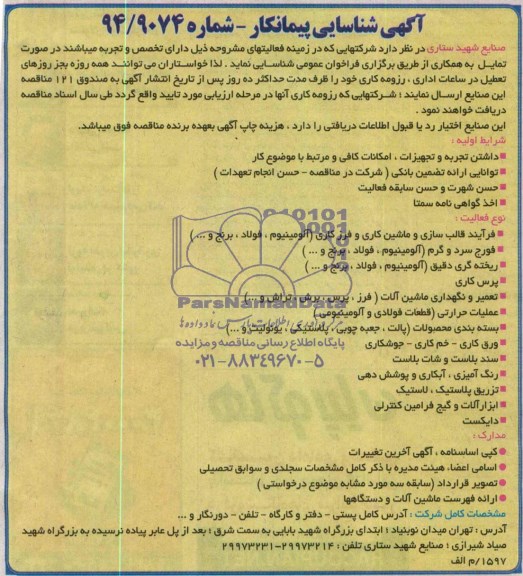 آگهی شناسایی پیمانکار - شماره ۹۴/۹۰۷۴
صنایع شهید ستاری در نظر دارد شرکتهایی که در زمینه فعالیتهای مشروحه ذیل دارای تخصص و تجربه میباشند در صورت
تمایل به همکاری از طریق برگزاری فراخوان عمومی شناسایی نماید . لذا خواستاران می توانند همه روزه بجز روزهای
تعطیل در ساعات اداری ، رزومه کاری خود را ظرف مدت حداکثر ده روز پس از تاریخ انتشار آگهی به صندوق ۱۲۱ مناقصه
این صنایع ارسال نمایند ؛ شرکتهایی که رزومه کاری آنها در مرحله ارزیابی مورد تایید واقع گردد طی سال اسناد مناقصه
دریافت خواهند نمود .
این صنایع اختیار رد یا قبول اطلاعات دریافتی را دارد ، هزینه چاپ آگهی بعهده برنده مناقصه فوق میباشد.
شرایط اولیه :
داشتن تجربه و تجهیزات ، امکانات کافی و مرتبط با موضوع کار
توانایی ارائه تضمین بانکی ( شرکت در مناقصه - حسن انجام تعهدات )
حسن شهرت و حسن سابقه فعالیت
اخذ گواهی نامه سمتا
نوع فعالیت :
فرآیند قالب سازی و ماشین کاری و فرز کاری (آلومینیوم ، فولاد ، برنج و ... )
فورج سرد و گرم (آلومینیوم ، فولاد ، برنج و ... )
ریخته گری دقیق (آلومینیوم ، فولاد ، برنج و ... )
پرس کاری
تعمیر و نگهداری ماشین آلات ( فرز ، پرس، برش ، تراش و ... )
عملیات حرارتی (قطعات فولادی و آلومینیومی)
بسته بندی محصولات (پالت ، جعبه چوبی، پلاستیکی ، یونولیت و ... )
ورق کاری - خم کاری - جوشکاری
سند بلاست و شات بلاست
رنگ آمیزی ، آبکاری و پوشش دهی
تزریق پلاستیک ، لاستیک
ابزارآلات و گیج فرامین کنترلی
دایکست
ParsNamadData
پایگاه اطلاع رسانی مناقصه و مزایده
۰۲۱-۸۸۳۴۹۶۷۰-۵
مدارک :
کپی اساسنامه ، آگهی آخرین تغییرات
اسامی اعضاء هیئت مدیره با ذکر کامل مشخصات سجلدی و سوابق تحصیلی
تصویر قرارداد (سابقه سه مورد مشابه موضوع درخواستی )
ارائه فهرست ماشین آلات و دستگاهها
مشخصات کامل شرکت : آدرس کامل پستی - دفتر و کارگاه - تلفن - دورنگار و ...
آدرس : تهران میدان نوبنیاد ؛ ابتدای بزرگراه شهید بابایی به سمت شرق ؛ بعد از پل عابر پیاده نرسیده به بزرگراه شهید
صیاد شیرازی ؛ صنایع شهید ستاری تلفن : ۲۹۹۷۳۲۱۴-۲۹۹۷۳۲۳۱
۱۵۹۷/م الف